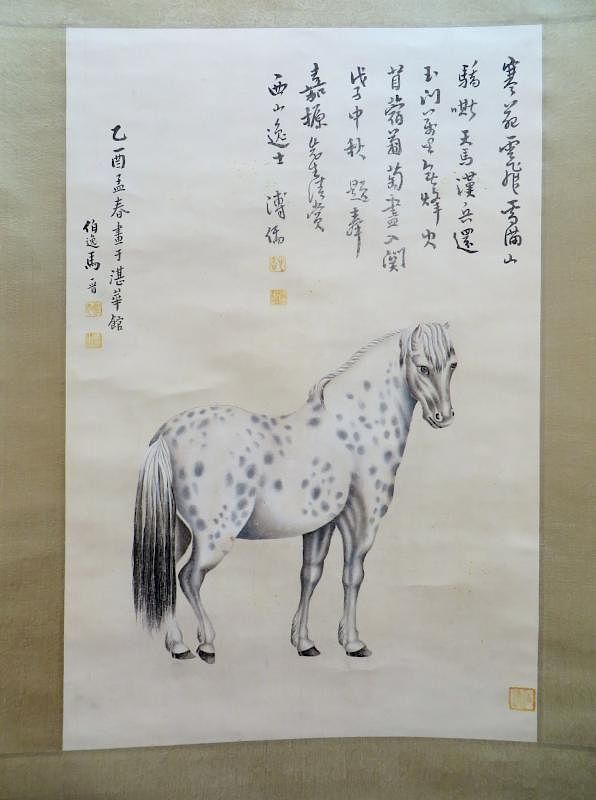 寒苑雲飛雪滿山
驕嘶天馬漢兵還
玉門萬里無烽火
苜蓿葡萄盡入關
戊子中秋 題奉
嘉㮣先生清賞
西山逸士 溥儒
乙酉孟春畫于湛華館
伯逸馬晉